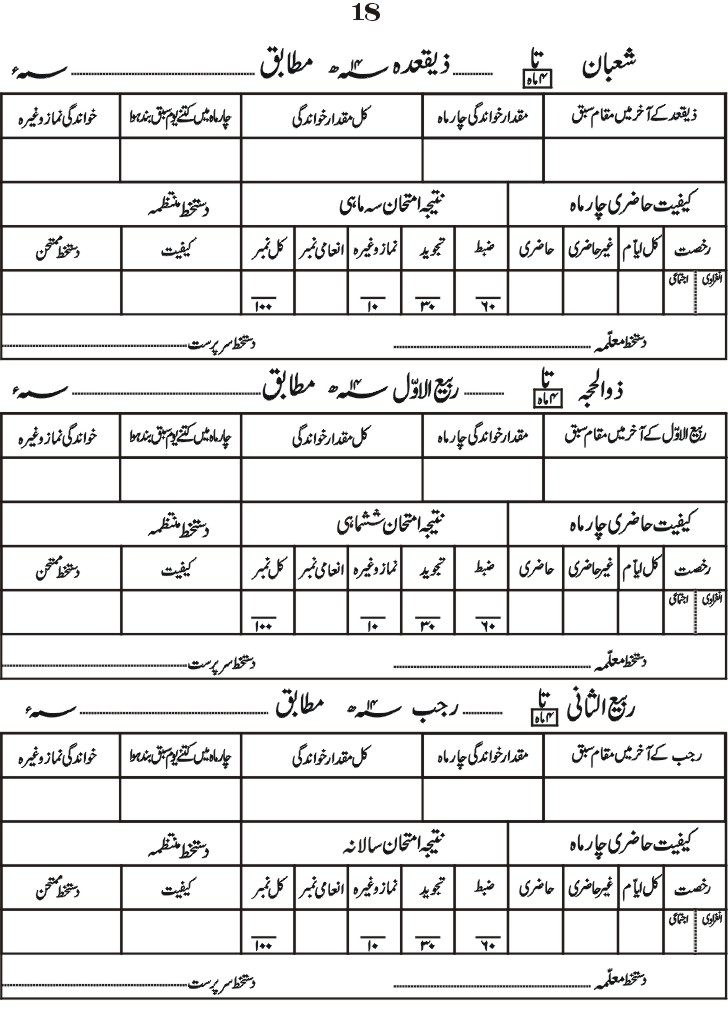 18
شعبان تا ۴ماہ ذیقعدہ ۱۴ھ مطابق ء
ذیقعد کے آخر میں مقام سبق مقدار خواندگی چار ماہ کل مقدار خواندگی چار ماہ میں کتنے یوم سبق بند ہوا خواندگی نماز وغیرہ
کیفیت حاضری چار ماہ نتیجہ امتحان سہ ماہی دستخط منتظمہ
رخصت کل ایّام غیر حاضری حاضری ضبط تجوید نماز وغیرہ انعامی نمبر کل نمبر کیفیت دستخط ممتحن
انفرادی اجتماعی ۶۰ ۳۰ ۱۰ ۱۰۰
دستخط معلّمہ دستخط سرپرست
ذوالحجہ تا ۴ماہ ربیع الاوّل ۱۴ھ مطابق ء
ربیع الاوّل کے آخر میں مقام سبق مقدار خواندگی چار ماہ کل مقدار خواندگی چار ماہ میں کتنے یوم سبق بند ہوا خواندگی نماز وغیرہ
کیفیت حاضری چار ماہ نتیجہ امتحان ششماہی دستخط منتظمہ
رخصت کل ایّام غیر حاضری حاضری ضبط تجوید نماز وغیرہ انعامی نمبر کل نمبر کیفیت دستخط ممتحن
انفرادی اجتماعی ۶۰ ۳۰ ۱۰ ۱۰۰
دستخط معلّمہ دستخط سرپرست
ربیع الثانی تا ۴ماہ رجب ۱۴ھ مطابق ء
رجب کے آخر میں مقام سبق مقدار خواندگی چار ماہ کل مقدار خواندگی چار ماہ میں کتنے یوم سبق بند ہوا خواندگی نماز وغیرہ
کیفیت حاضری چار ماہ نتیجہ امتحان سالانہ دستخط منتظمہ
رخصت کل ایّام غیر حاضری حاضری ضبط تجوید نماز وغیرہ انعامی نمبر کل نمبر کیفیت دستخط ممتحن
انفرادی اجتماعی ۶۰ ۳۰ ۱۰ ۱۰۰
دستخط معلّمہ دستخط سرپرست